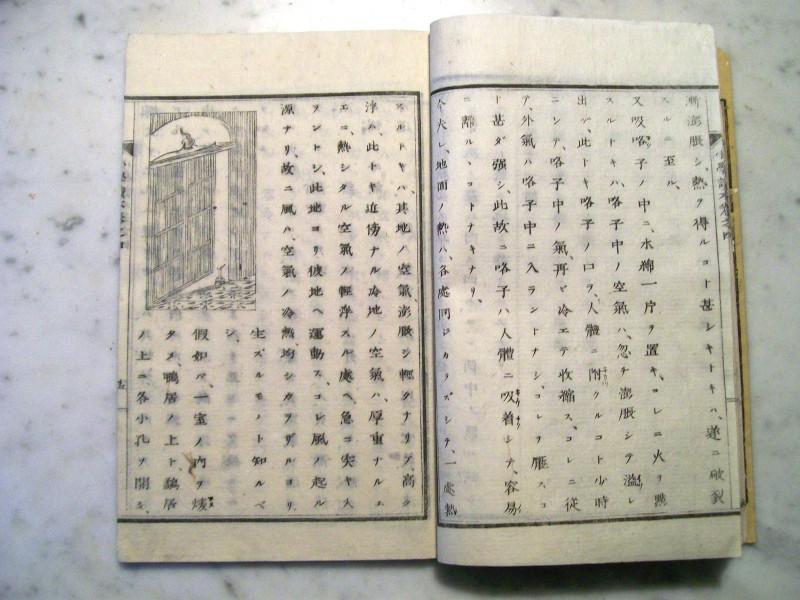 漸膨脹シ、熱ヲ得ルコト甚シキトキハ、遂ニ破裂
スルニ至ル、
又吸咯子ノ中ニ、水綿一片ヲ置キ、コレニ火ヲ點
スルトキハ、咯子中ノ空氣ハ、忽チ膨脹シテ溢レ
出ヅ、此トキ咯子ノ口ヲ、人體ニ附クルコト少時
ニシテ、咯子中ノ氣、再ビ冷エテ收縮ス、コレニ從
テ、外氣ハ咯子中ニ入ラントナシ、コレヲ壓スコ
ト甚ダ强シ、此故ニ咯子ハ人體ニ吸着シテ、容易
ニ離ルヽコトナキナリ、
今夫レ、地面ノ熱ハ、各處同ジカラズシテ、一處熱
スルトキハ、其地ノ空氣、膨脹シ輕クナリテ、高ク
浮ム、此トキ近傍ナル冷地ノ空氣ハ、厚重ナルユ
エニ、熱シタル空氣ノ輕浮スル處ヘ、急ニ突キ入
ラントシ、此地ヨリ彼地ヘ運動ス、コレ風ノ起ル
源ナリ、故ニ風ハ、空氣ノ冷熱、均シカラザルヨリ
生ズルモノト知ルベ
シ、
假如バ、一室ノ內ヲ煖
タメ、鴨居ノ上ト、鷄居
ノ上ニ各小孔ヲ開ク、